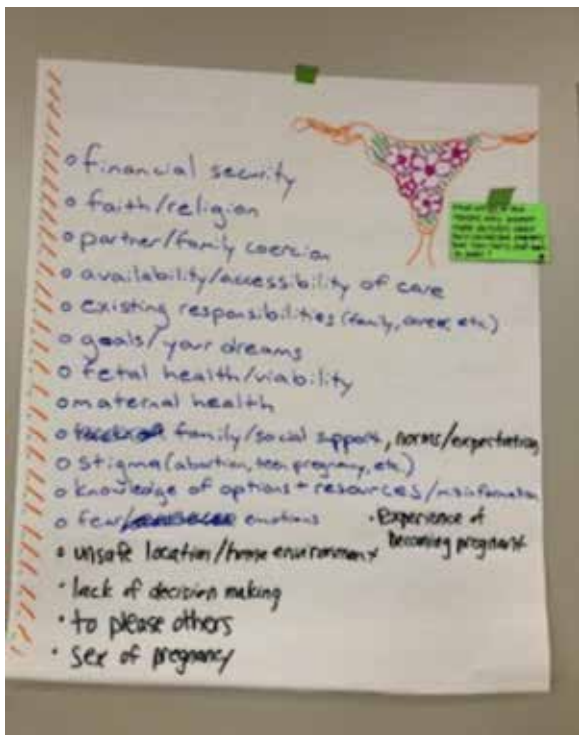 o financial security
o faith/religion
o partner/family coercion
o availability/accessibility of care
o existing responsibilities (family, career, etc)
o goals/your dreams
o fetal health/viability
o maternal health
o family/social support, norms/expectation
o stigma (abortion, teen pregnancy, etc)
o knowledge of options + resources/misinformation
o fear/ emotions
• Experience of
becoming pregnant
• unsafe location/home environment
• lack of decision making
• to please others
• Sex of pregnancy